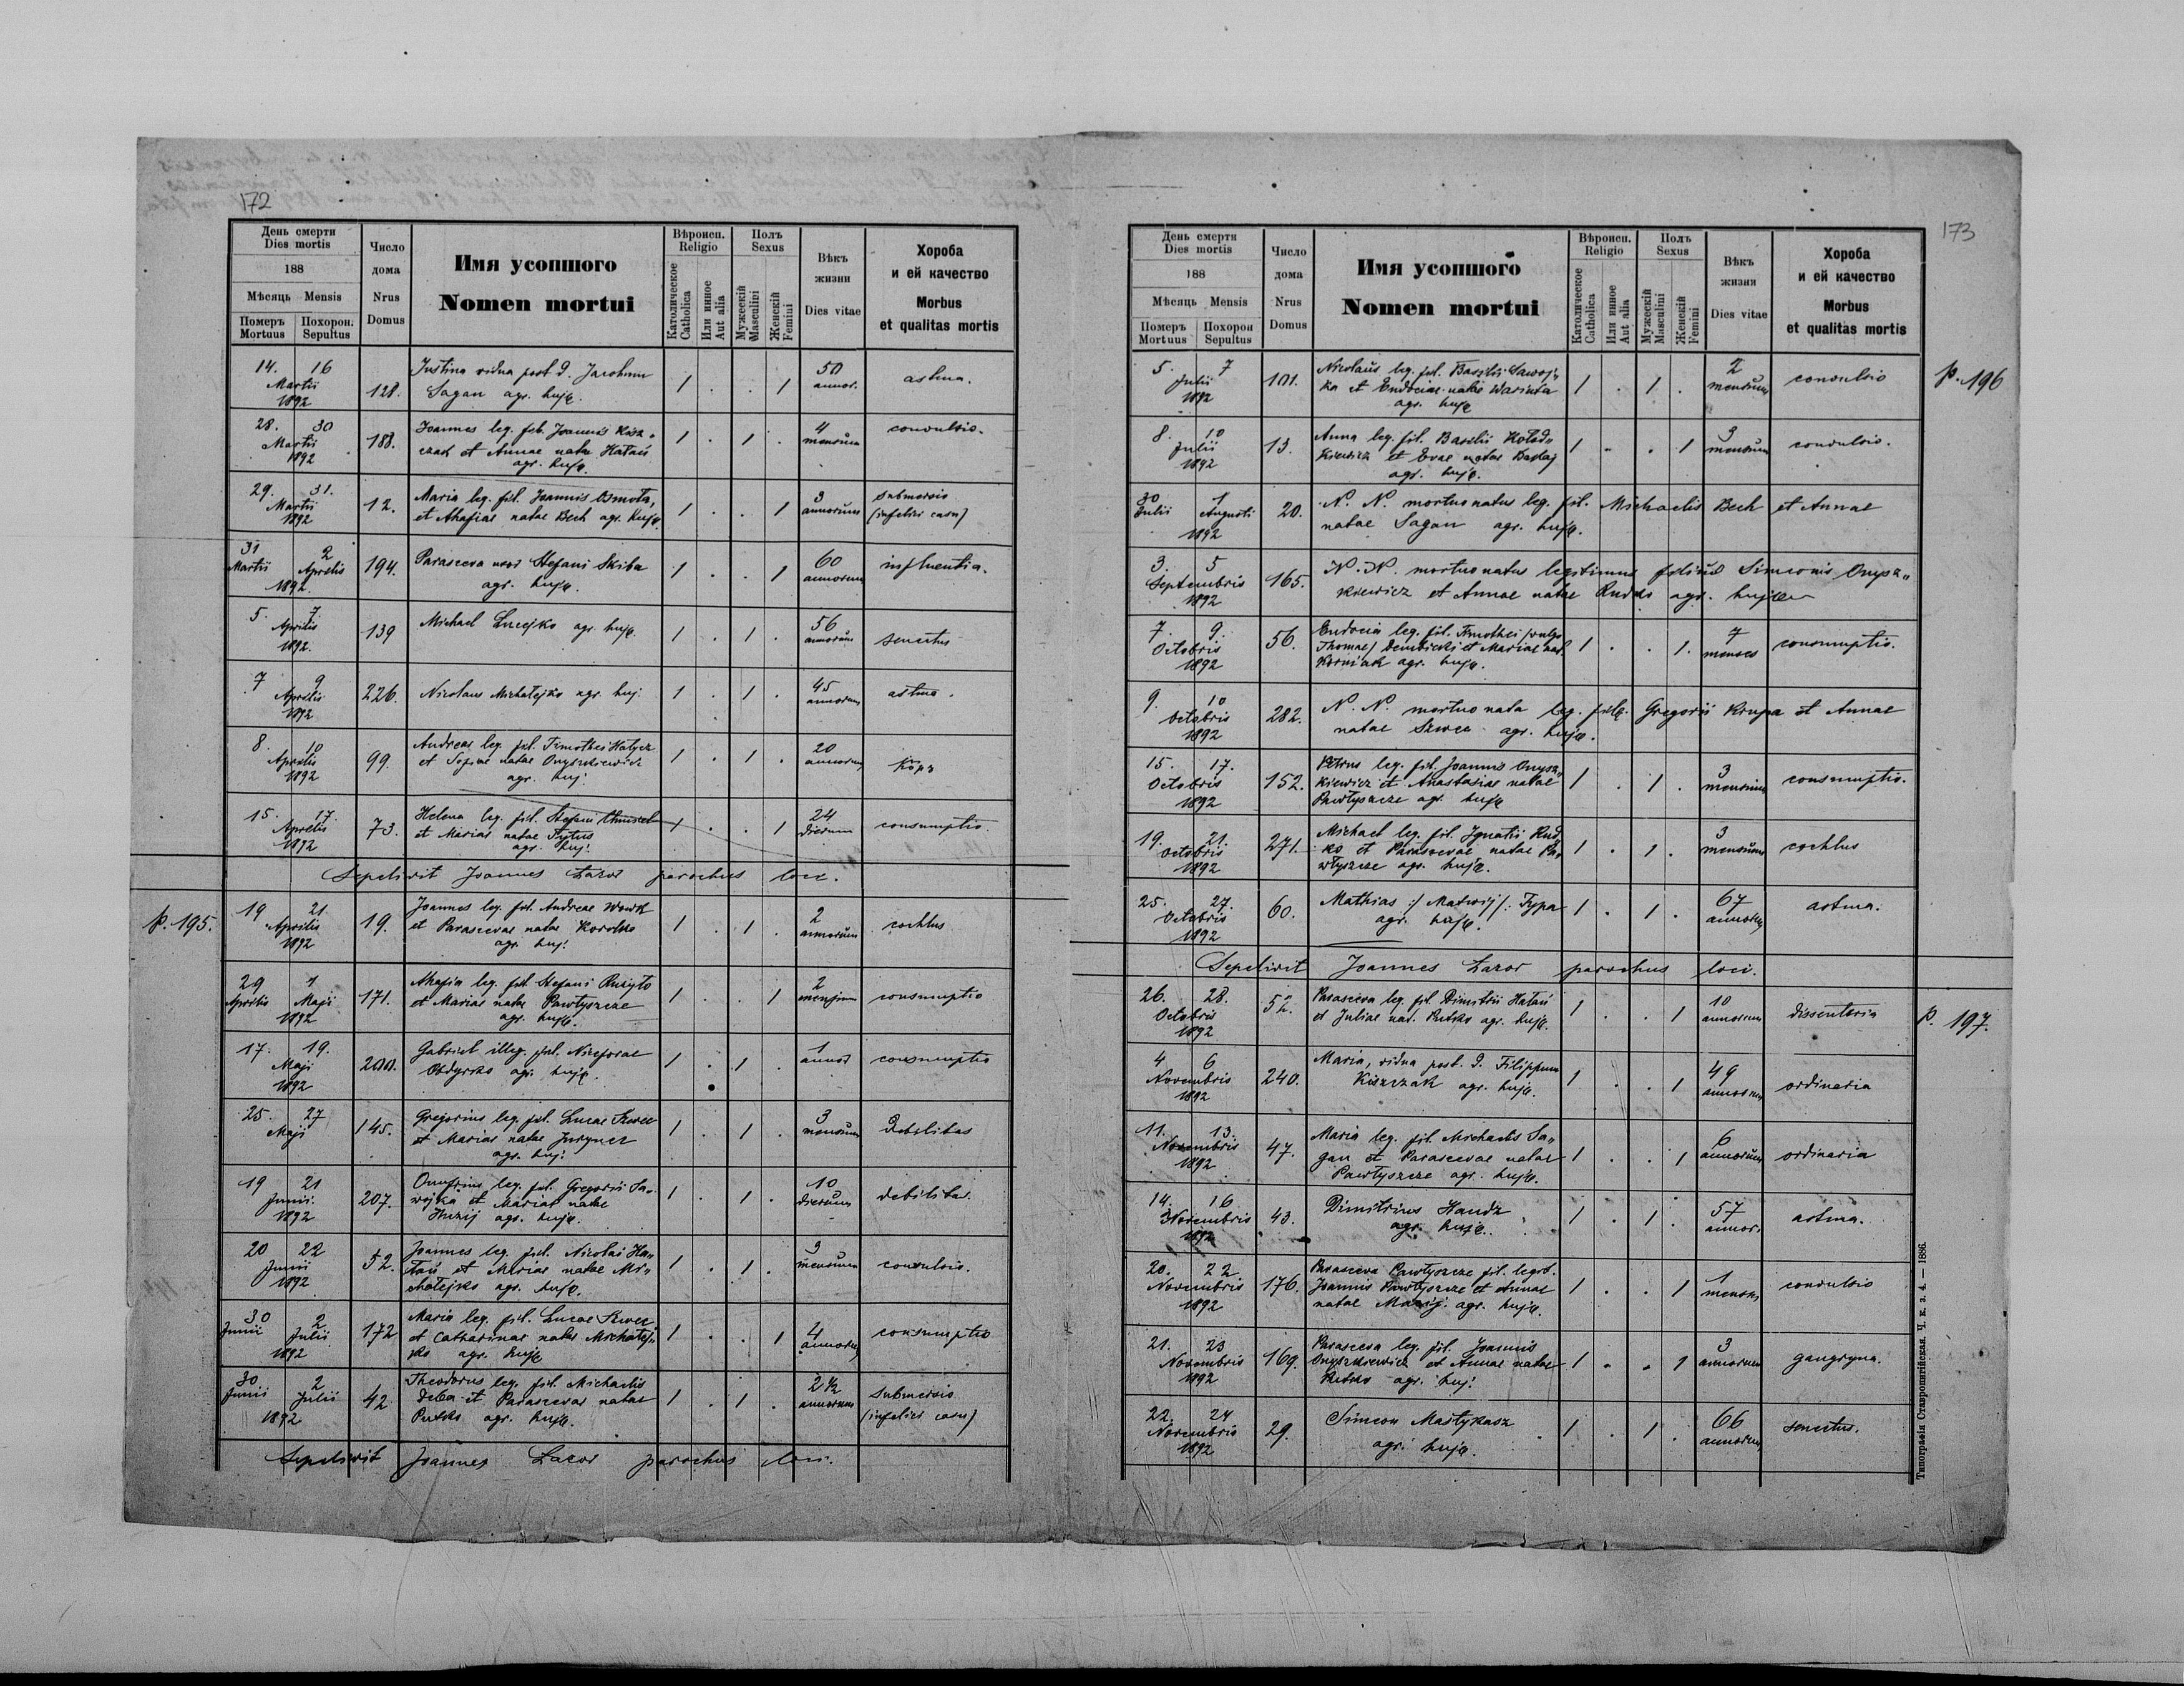 172
День смерти
Dies mortis
188
Мѣсяць Mensis
Померъ
Mortuus
Похорон.
Sepultus
Число
дома
Nrus
Domus
Имя усопшого
Nomen mortui
Вѣроисп.
Religio
Католическое
Catholica
Или инное
Aut alia
Полъ
Sexus
Мужескій
Masculini
Женскій
Femini
Вѣкъ
жизни
Dies vitae
Хороба
и ей качество
Morbus
et qualitas mortis
14. 16 Martii 1892 128. Justina vidua post d. Jacobum
Sagan agr. huj. 1 . . 1 50 annor. astma.
28. 30 Martii 1892 188. Joannes leg. fil. Joannis Kisz„
czak et Annae natae Hałań
agr. huj. 1 . 1 . 4 mensium convulsio.
29. 31. Martii 1892 12. Maria leg. fil. Joannis
et Ahafiae natae Bech agr. huj. 1 . . 1 3 annorum submersio
(infelici casu)
31 Martii 2 Aprilis 1892 194. Parasceva uxor Stefani Skiba
agr. huj. 1 . . 1 60 annorum influentia.
5. 7. Aprilis 1892. 139 Michael Łucejko agr. huj. 1 . 1 . 56 annorum senectus
7 9 Aprilis 1892 226. Nicolaus Michałejko agr. huj. 1 . 1 . 45 annorum astma.
8. 10 Aprilis 1892 99. Andreas leg. fil. Timothei Hałycz
et Sofiae natae Onyszkiewicz
agr. huj. 1 . 1 . 20 annorum
15. 17. Aprilis 1892 73. Helena leg. fil. Stefani
et Mariae natae Tytus
agr. huj. 1 . . 1 24 dierum consumptio.
Sepelivit Joannes Łazor parochus loci.
p. 195.
19 21 Aprilis 1892 19. Joannes leg. fil. Andreae Wowk
et Parascevae natae Korotko
agr. huj. 1 . 1 . 2 annorum cochlus
29 Aprilis 1 Maji 1892 171. Ahafia leg. fil. Stefani Ruzyło
et Mariae natae Pawłyszcze
agr. huj. 1 . . 1 2 mensium consumptio
17. 19. Maji 1892 200. Gabriel illeg. fil. Niceforae
agr. huj. 1 . 1 . 1 consumptio
25. 27 Maji 145. Gregorius leg. fil. Lucae Szwec
et Mariae natae Juryncz
agr. huj. 1 . 1 . 3 mensium debilitas
19 21 Junii 1892 207. Onufrius leg. fil. Gregorii Sa„
wojka et Mariae natae
agr. huj. 1 . 1 . 10 dierum debilitas.
20 22 Junii 1892 52. Joannes leg. fil. Nicolai Ha„
łań et Mariae natae Mi„
chałejko agr. huj. 1 . 1 . 3 mensium convulsio.
30 Junii 2 Julii 1892 172 Maria leg. fil. Lucae Szwec
et Catharinae natae Michałej„
ko agr. huj. 1 . . 1 4 annorum consumptio
30 Junii 2 Julii 1892 42 Theodorus leg. fil. Michaelis
Deba et Parascevae natae
Rutko agr. huj. 1 . 1 . 2 1/2 annorum submersio
(infelici casu)
Sepelivit Joannes Łazor parochus loci.
173
День смерти
Dies mortis
188
Мѣсяць Mensis
Померъ
Mortuus
Похорон
Sepultus
Число
дома
Nrus
Domus
Имя усопшого
Nomen mortui
Вѣроисп.
Religio
Католическое
Catholica
Или инное
Aut alia
Полъ
Sexus
Мужескій
Masculini
Женскій
Femini
Вѣкъ
жизни
Dies vitae
Хороба
и ей качество
Morbus
et qualitas mortis
5. 7 Julii 1892 101. Nicolaus leg. fil. Basilii Sawoj„
ka et Eudociae natae Warinta
agr. huj. 1 . 1 . 2 mensium convulsio
p. 196
8. 10 Julii 1892 13. Anna leg. fil. Basilii Hołod„
kiewicz et Evae natae
agr. huj. 1 . . 1 3 mensium convulsio.
30 Julii 1 Augusti 1892 20. N. N. mortuo natus leg. fil. Michaelis Bech et Annae
natae Sagan agr. huj.
3. 5 Septembris 1892 165. N. N. mortuo natus legitimus filius Simeonis Onysz„
kiewicz et Annae natae Rudko agr. hujus
7. 9. Octobris 1892 56. Eudocia leg. fil. Timothei /vulgo
Thomae/ Dembicki et Mariae nat.
Korniak agr. huj. 1 . . 1. 7 menses consumptio.
9. 10 Octobris 1892 282. N. N. mortuo nata leg. filia Gregorii Krupa et Annae
natae Szwec agr. huj.
15. 17. Octobris 1892 152. Petrus leg. fil. Joannis Onysz„
kiewicz et Anastasiae natae
Pawłyszcze agr. huj. 1 . 1 . 3 mensium consumptio.
19. 21. Octobris 1892 271. Michael leg. fil. Ignatii Rud„
ko et Parascevae natae Pa„
włyszcze agr. huj. 1 . 1 . 3 mensium cochlus
25. 27. Octobris 1892 60. Mathias :/ Matwij /: Typa
agr. huj. 1 . 1 . 67 annorum astma.
Sepelivit Joannes Łazor parochus loci.
26. 28. Octobris 1892 52. Parasceva leg. fil. Dimitrii Hałań
et Juliae nat. Rutko agr. huj. 1 . . 1 10 annorum dissenteria
p. 197.
4 6 Novembris 1892 240. Maria, vidua post. d. Filippum
Kiszczak agr. huj. 1 . . 1 49 annorum ordinaria
11. 13. Novembris 1892 47. Maria leg. fil. Michaelis Sa„
gan et Parascevae natae
Pawłyszcze agr. huj. 1 . . 1 6 annorum ordinaria
14. 16 Novembris 1892 43. Dimitrius Handz
agr. huj. 1 . 1 . 57 annor. astma.
20. 22 Novembris 1892 176. Parasceva Pawłyszcze fil. legit.
Joannis Pawłyszcze et Annae
natae agr. huj. 1 . . 1 1 mensis convulsio
21. 23 Novembris 1892 169. Parasceva leg. fil. Joannis
Onyszkiewicz et Annae natae
Rutko agr. huj. 1 . . 1 3 annorum gangryna.
22. 24 Novembris 1892 29. Simeon Mastykasz
agr. huj. 1 . 1 . 66 annorum senectus.
Типографія Ставропигійская. Ч. к. з. 4. — 1886.